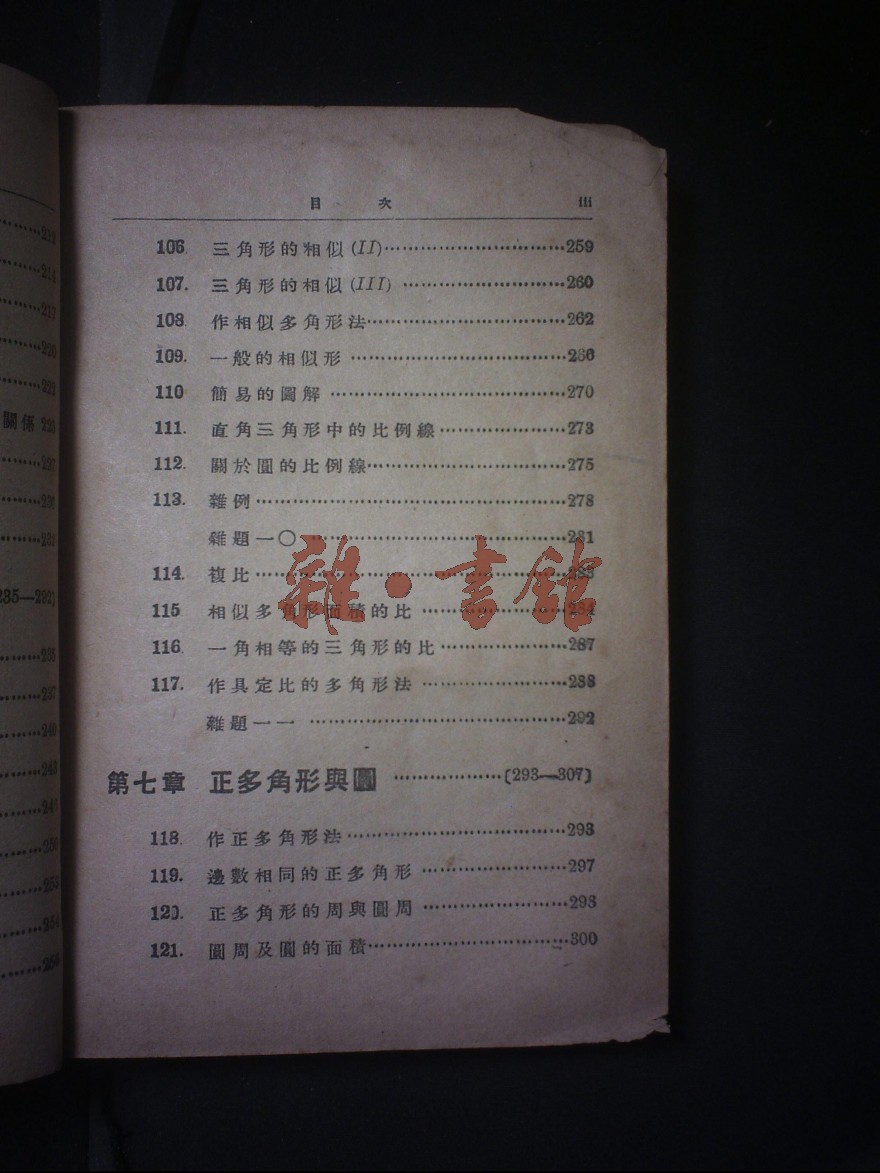 目 次 iii
106. 三角形的相似(II)……259
107. 三角形的相似(III)……260
108. 作相似多角形法……262
109. 一般的相似形……266
110 簡易的圖解……270
111. 直角三角形中的比例線……273
112. 關於圓的比例線……275
113. 雜例……278
雜題一〇……281
114. 複比……
115 相似多角形面積的比……284
116. 一角相等的三角形的比……287
117. 作具定比的多角形法……288
雜題一一……292
第七章 正多角形與圓……(293—307)
118. 作正多角形法……293
119. 邊數相同的正多角形……297
120. 正多角形的周與圓周……298
121. 圓周及圓的面積……300
雜·書館
219
214
217
220
222
關係 226
227
232
235—292)
238
237
240
243
250
253
254